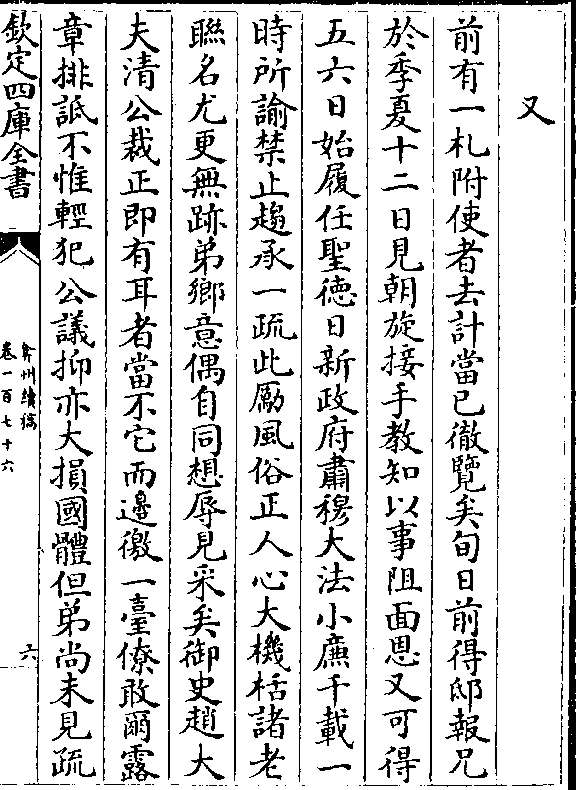 又
前有一札附使者去計當已徹覽矣旬日前得邸報兄
於季夏十二日見朝旋接手教知以事阻面恩又可得
五六日始履任聖德日新政府肅穆大法小廉千載一
時所諭禁止趨承一疏此勵風俗正人心大機栝諸老
聮名尤更無跡弟鄉意偶自同想辱見采矣御史趙大
夫清公裁正即有耳者當不它而邊徼一臺僚敢爾露
章排詆不惟輕犯公議抑亦大損國體但弟尚未見疏
欽定四庫全書
弇州續稿
卷一百七十六
六